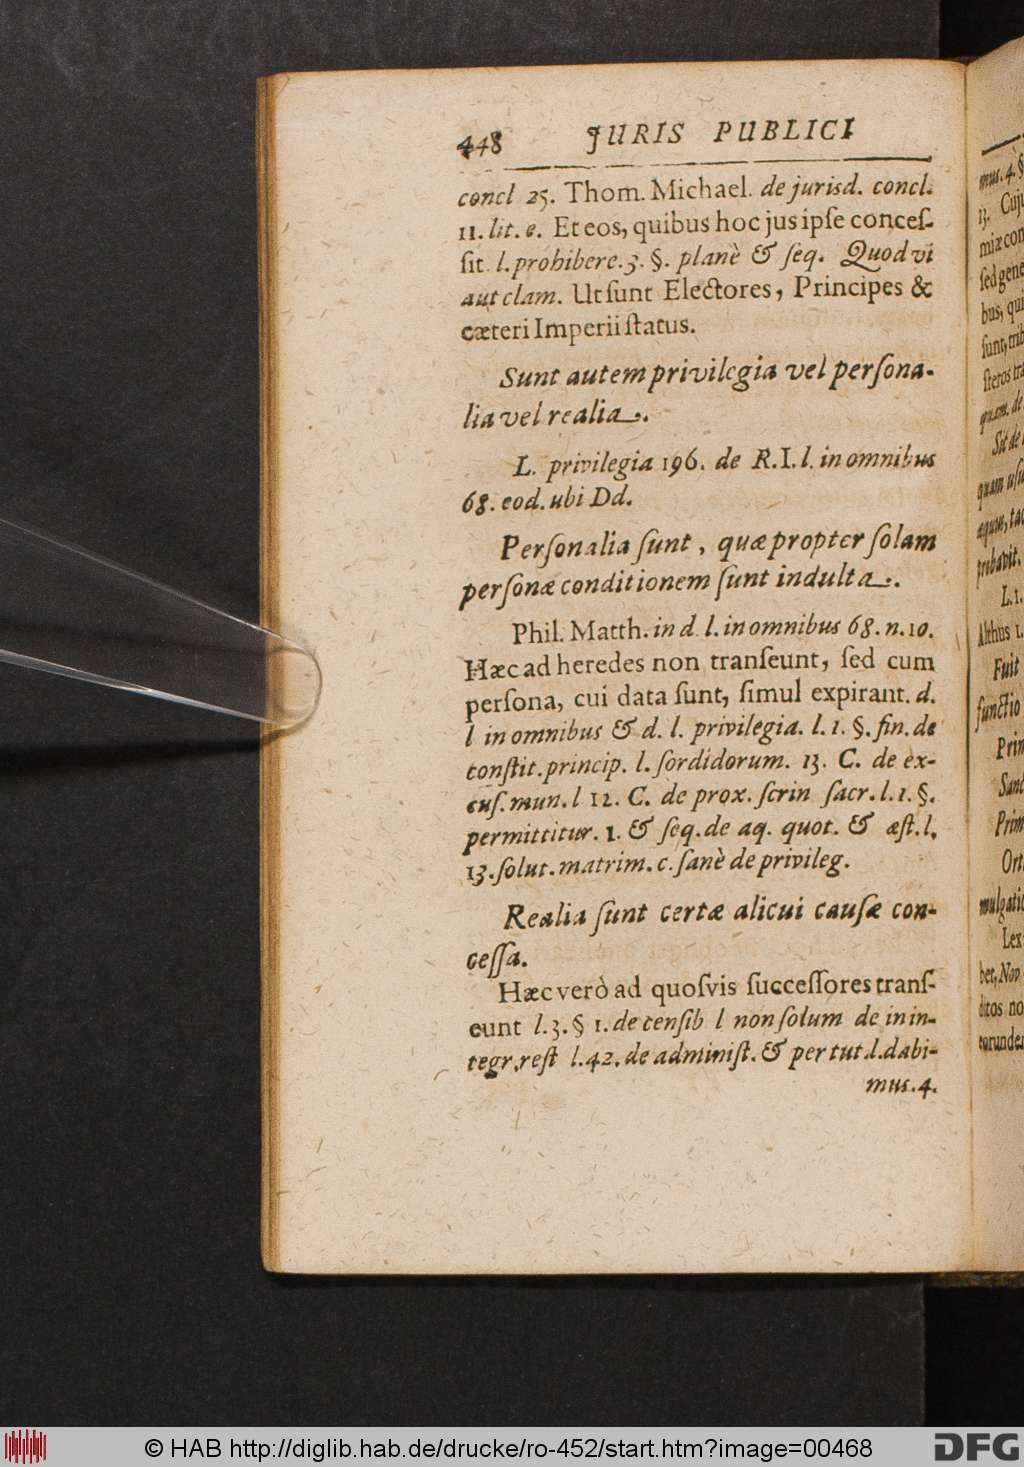 448 JURIS PUBLICI
concl 25. Thom. Michael. de jurisd. concl.
11. lit. e. Et eos, quibus hoc jus ipſe conceſ-
ſit. l. prohibere. 3. §. planè & ſeq. Quod vi
aut clam. Ut ſunt Electores, Principes &
cæteri Imperii ſtatus.
Sunt autem privilegia vel perſona-
lia vel realia.
L. privilegia 196. de R. I. l. in omnibus
68. eod. ubi Dd.
Perſonalia ſunt, quæ propter ſolam
perſonæ conditionem ſunt indulta.
Phil. Matth. in d. l. in omnibus 68. n. 10.
Hæc ad heredes non tranſeunt, ſed cum
perſona, cui data ſunt, ſimul expirant. d.
l in omnibus & d. l. privilegia. l. 1. §. fin. de
conſtit. princip. l. ſordidorum. 13. C. de ex-
cuſ. mun. l 12. C. de prox. ſcrin ſacr. l. 1. §.
permittitur. 1. & ſeq. de aq. quot. & æſt. l.
13. ſolut. matrim. c. ſanè de privileg.
Realia ſunt certæ alicui cauſæ con-
ceſſa.
Hæc verò ad quoſvis ſucceſſores tranſ-
eunt l. 3. § 1. de cenſib l non ſolum de in in-
tegr. reſt l. 42. de adminiſt. & per tut. l. dabi-
mus. 4.
mus. 4. §
13. Cuju
miæ con
ſed gene
bus, qui
ſunt, trib
ſteros tra
quam. de
Sit de
quam uſu
æquum, tac
probavit.
L. 1.
Althus 1.
Fuit
functio
Prin
Sant
Prim
Ort
mulgatio
Lex
bet, Nov
ditos no
eorunder
© HAB http://diglib.hab.de/drucke/ro-452/start.htm?image=00468
DFG